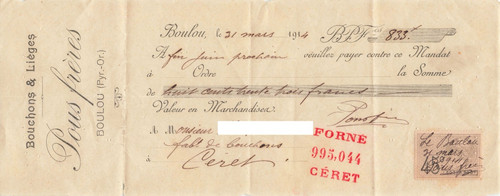 Bouchons & Lièges
Pous frères
BOULOU (Pyr.-Or.)
Boulou, le 21 mars 1914 B.P.F. 833
A fin juin prochain veuillez payer contre ce Mandat
à Ordre la Somme
de huit cents trente trois francs
Valeur en Marchandises
A Monsieur
fabt de bouchons
Céret
FORNE
995,044
CÉRET
Le Boulou
21 mars
1914